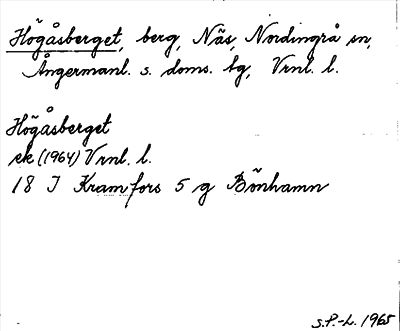 Högåsberget, berg, Näs, Nordingrå sn,
Ångermanl. s. doms. tg, Vrnl. l.
Högåsberget
ek (1964) Vrnl. l.
18 I Kramfors 5 g Bönhamn
S.P.-L. 1965